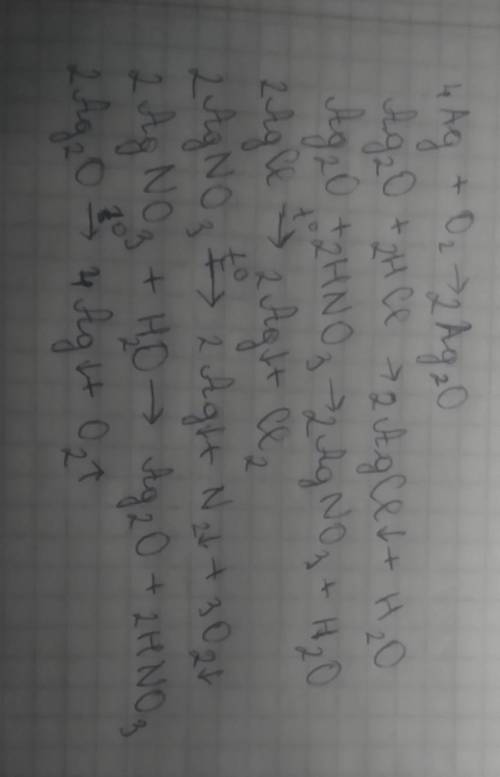 4Ag + O₂ → 2Ag₂O
Ag₂O + 2HCl → 2AgCl↓ + H₂O
Ag₂O + 2HNO₃ → 2AgNO₃ + H₂O
2AgCl →(t°) 2Ag↓ + Cl₂
2AgNO₃ →(t°) 2Ag↓ + N₂↓ + 3O₂↓
2AgNO₃ + H₂O → Ag₂O + 2HNO₃
2Ag₂O →(t°) 4Ag↓ + O₂↑